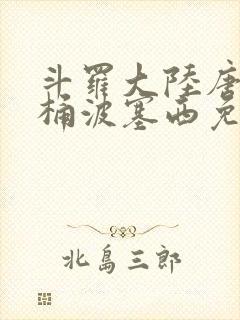 斗羅大陸唐
桶波塞西免
北島三郎